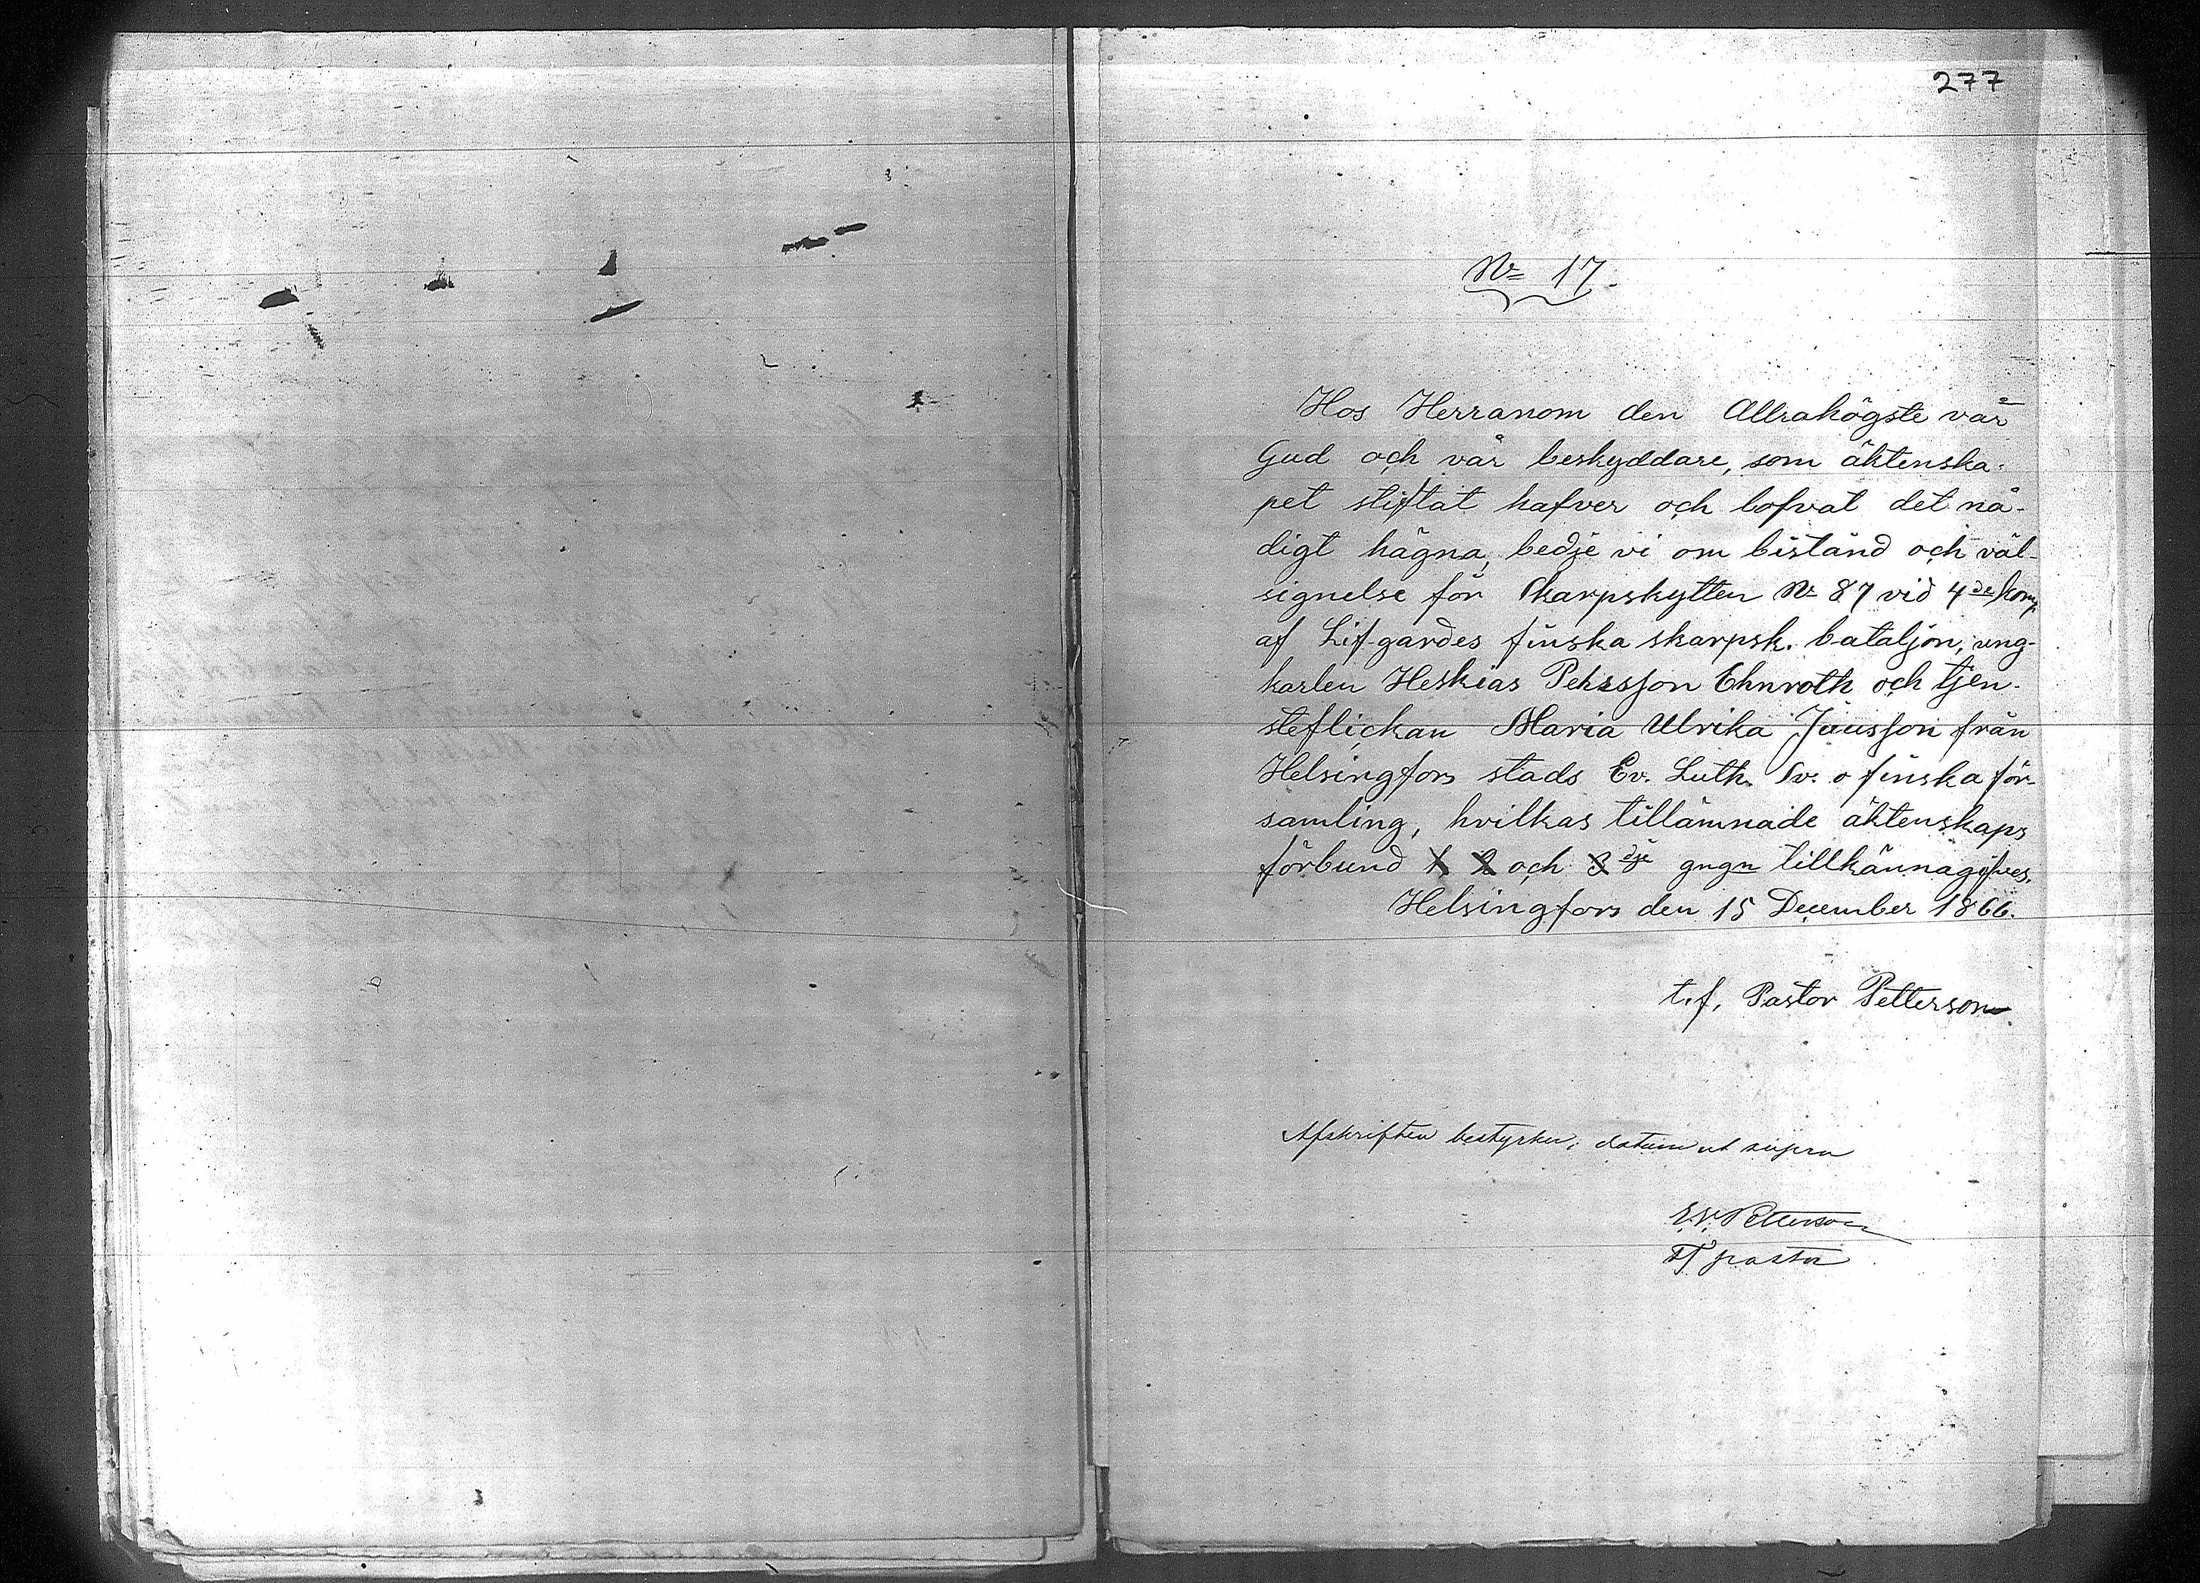 277
No 17.
Hos Herranom den Allrahögste vår
Gud och vår beskyddare, som äktenska-
pet stiftat hafver och lofvat det nå-
digt hägna, bedje vi om bistånd och väl-
signelse för Skarpskytten No 87 vid 4de Komp.
af Lif-gardes finska skarpsk. bataljon, ung-
karlen Heskias Pehrsson Ehnroth och tjen-
steflickan Maria Ulrika Jansson från
Helsingfors stads Ev. Luth. Sv. o finska för-
samling, hvilkas tillämnade äktenskaps
förbund 1 2 och 3 dje gngn tillkännagifves.
Helsingfors den 15 December 1866.
t.f. Pastor Petterson
Afskriften bestyrker; datum ut supra
Petterson
Tf pastor